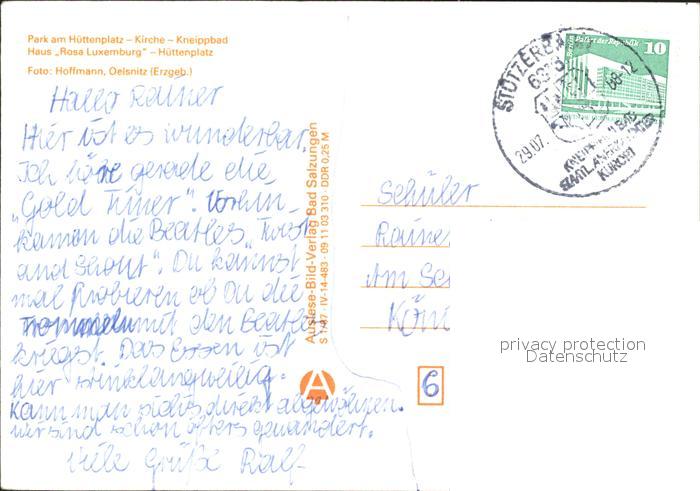 Park am Hüttenplatz – Kirche – Kneippbad
Haus „Rosa Luxemburg" – Hüttenplatz
Foto: Hoffmann, Oelsnitz (Erzgeb.)
Hallo Rainer
Hier ist es wunderbar.
Ich höre gerade die
„Gold Finer". Vorhin
kamen die Beatles „Twist
and Shout". Du kannst
mal Probieren ob Du die
mit den Beatles
kriegst. Das Essen ist
hier stinklangweilig.
Kann man sich direkt abgewöhnen.
wir sind schon öfters gewandert.
Viele Grüße Ralf
Auslese-Bild-Verlag Bad Salzungen
S 1/87 · IV-14-483 · 09 11 03 310 · DDR 0,25 M
A
STÜTZERBACH
29.07. 88-12
KNEIPP
STAATL. ANERKANNTER
KURORT
Berlin, Palast der Republik
10
Schüler
Rainer
Am Sc
Kön
6
privacy protection
Datenschutz